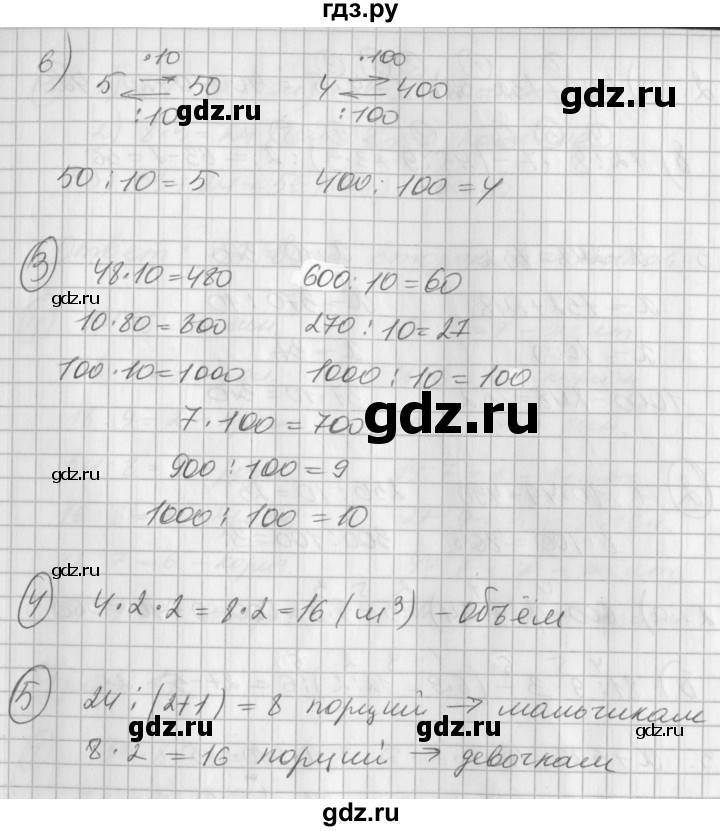 гдз.ру
б) ·10 ·100
5 ⇄ 50 4 ⇄ 400
:10 :100
gdz.ru gdz.ru
50 : 10 = 5 400 : 100 = 4
③ 48·10=480 600:10=60
gdz.ru
10·80=800 270:10=27
100·10=1000 1000:10=100
7·100=700
gdz.ru
900:100=9
gdz.ru
1000:100=10
gdz.ru
④ 4·2·2=8·2=16 (м³) – объём
⑤ 24:(2+1)=8 порций → мальчикам
gdz.ru gdz.ru
8·2=16 порций → девочкам
gdz.ru